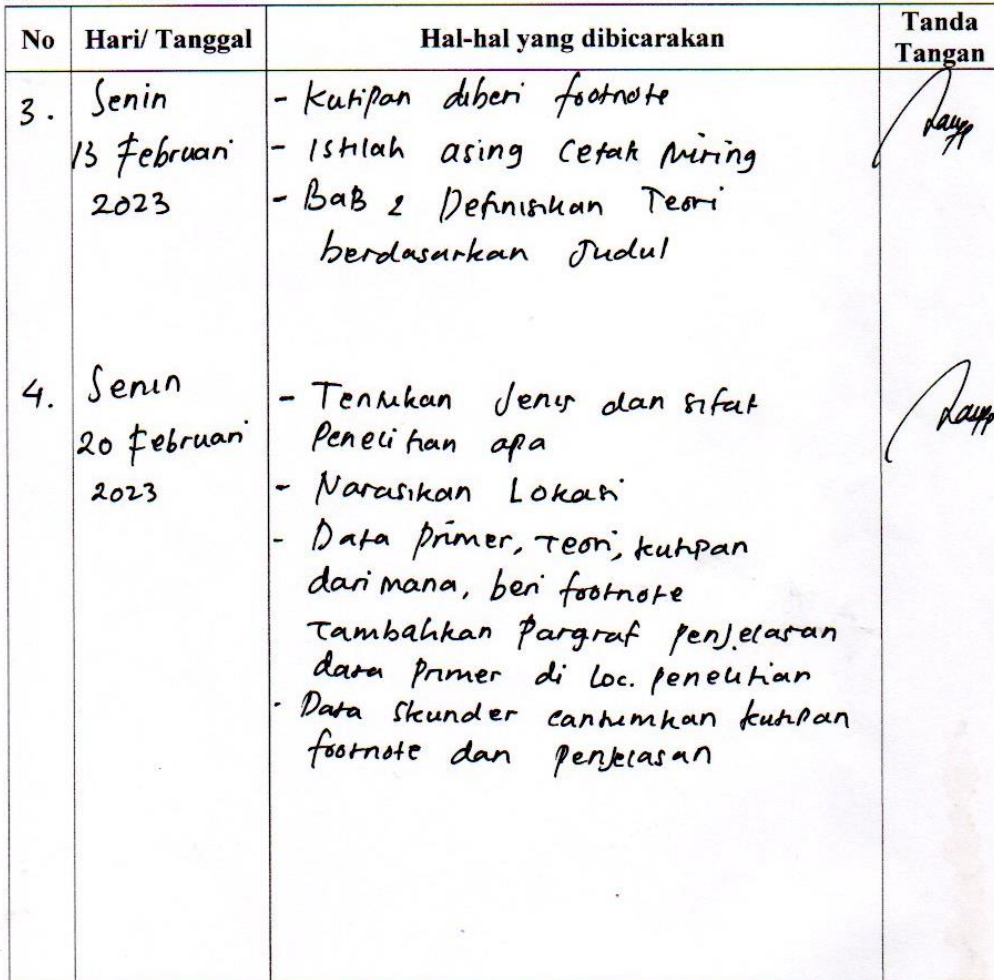 No Hari/ Tanggal Hal-hal yang dibicarakan Tanda Tangan
3. Senin - Kutipan diberi footnote
13 Februari - Istilah asing cetak miring
2023 - BaB 2 Definisikan Teori
berdasarkan Judul
4. Senin - Tentukan Jenis dan sifat
20 Februari Penelitian apa
2023 - Narasikan Lokasi
- Data primer, Teori, kutipan
dari mana, beri footnote
Tambahkan Pargraf penjelasan
data primer di loc. penelitian
- Data Skunder cantumkan kutipan
footnote dan penjelasan